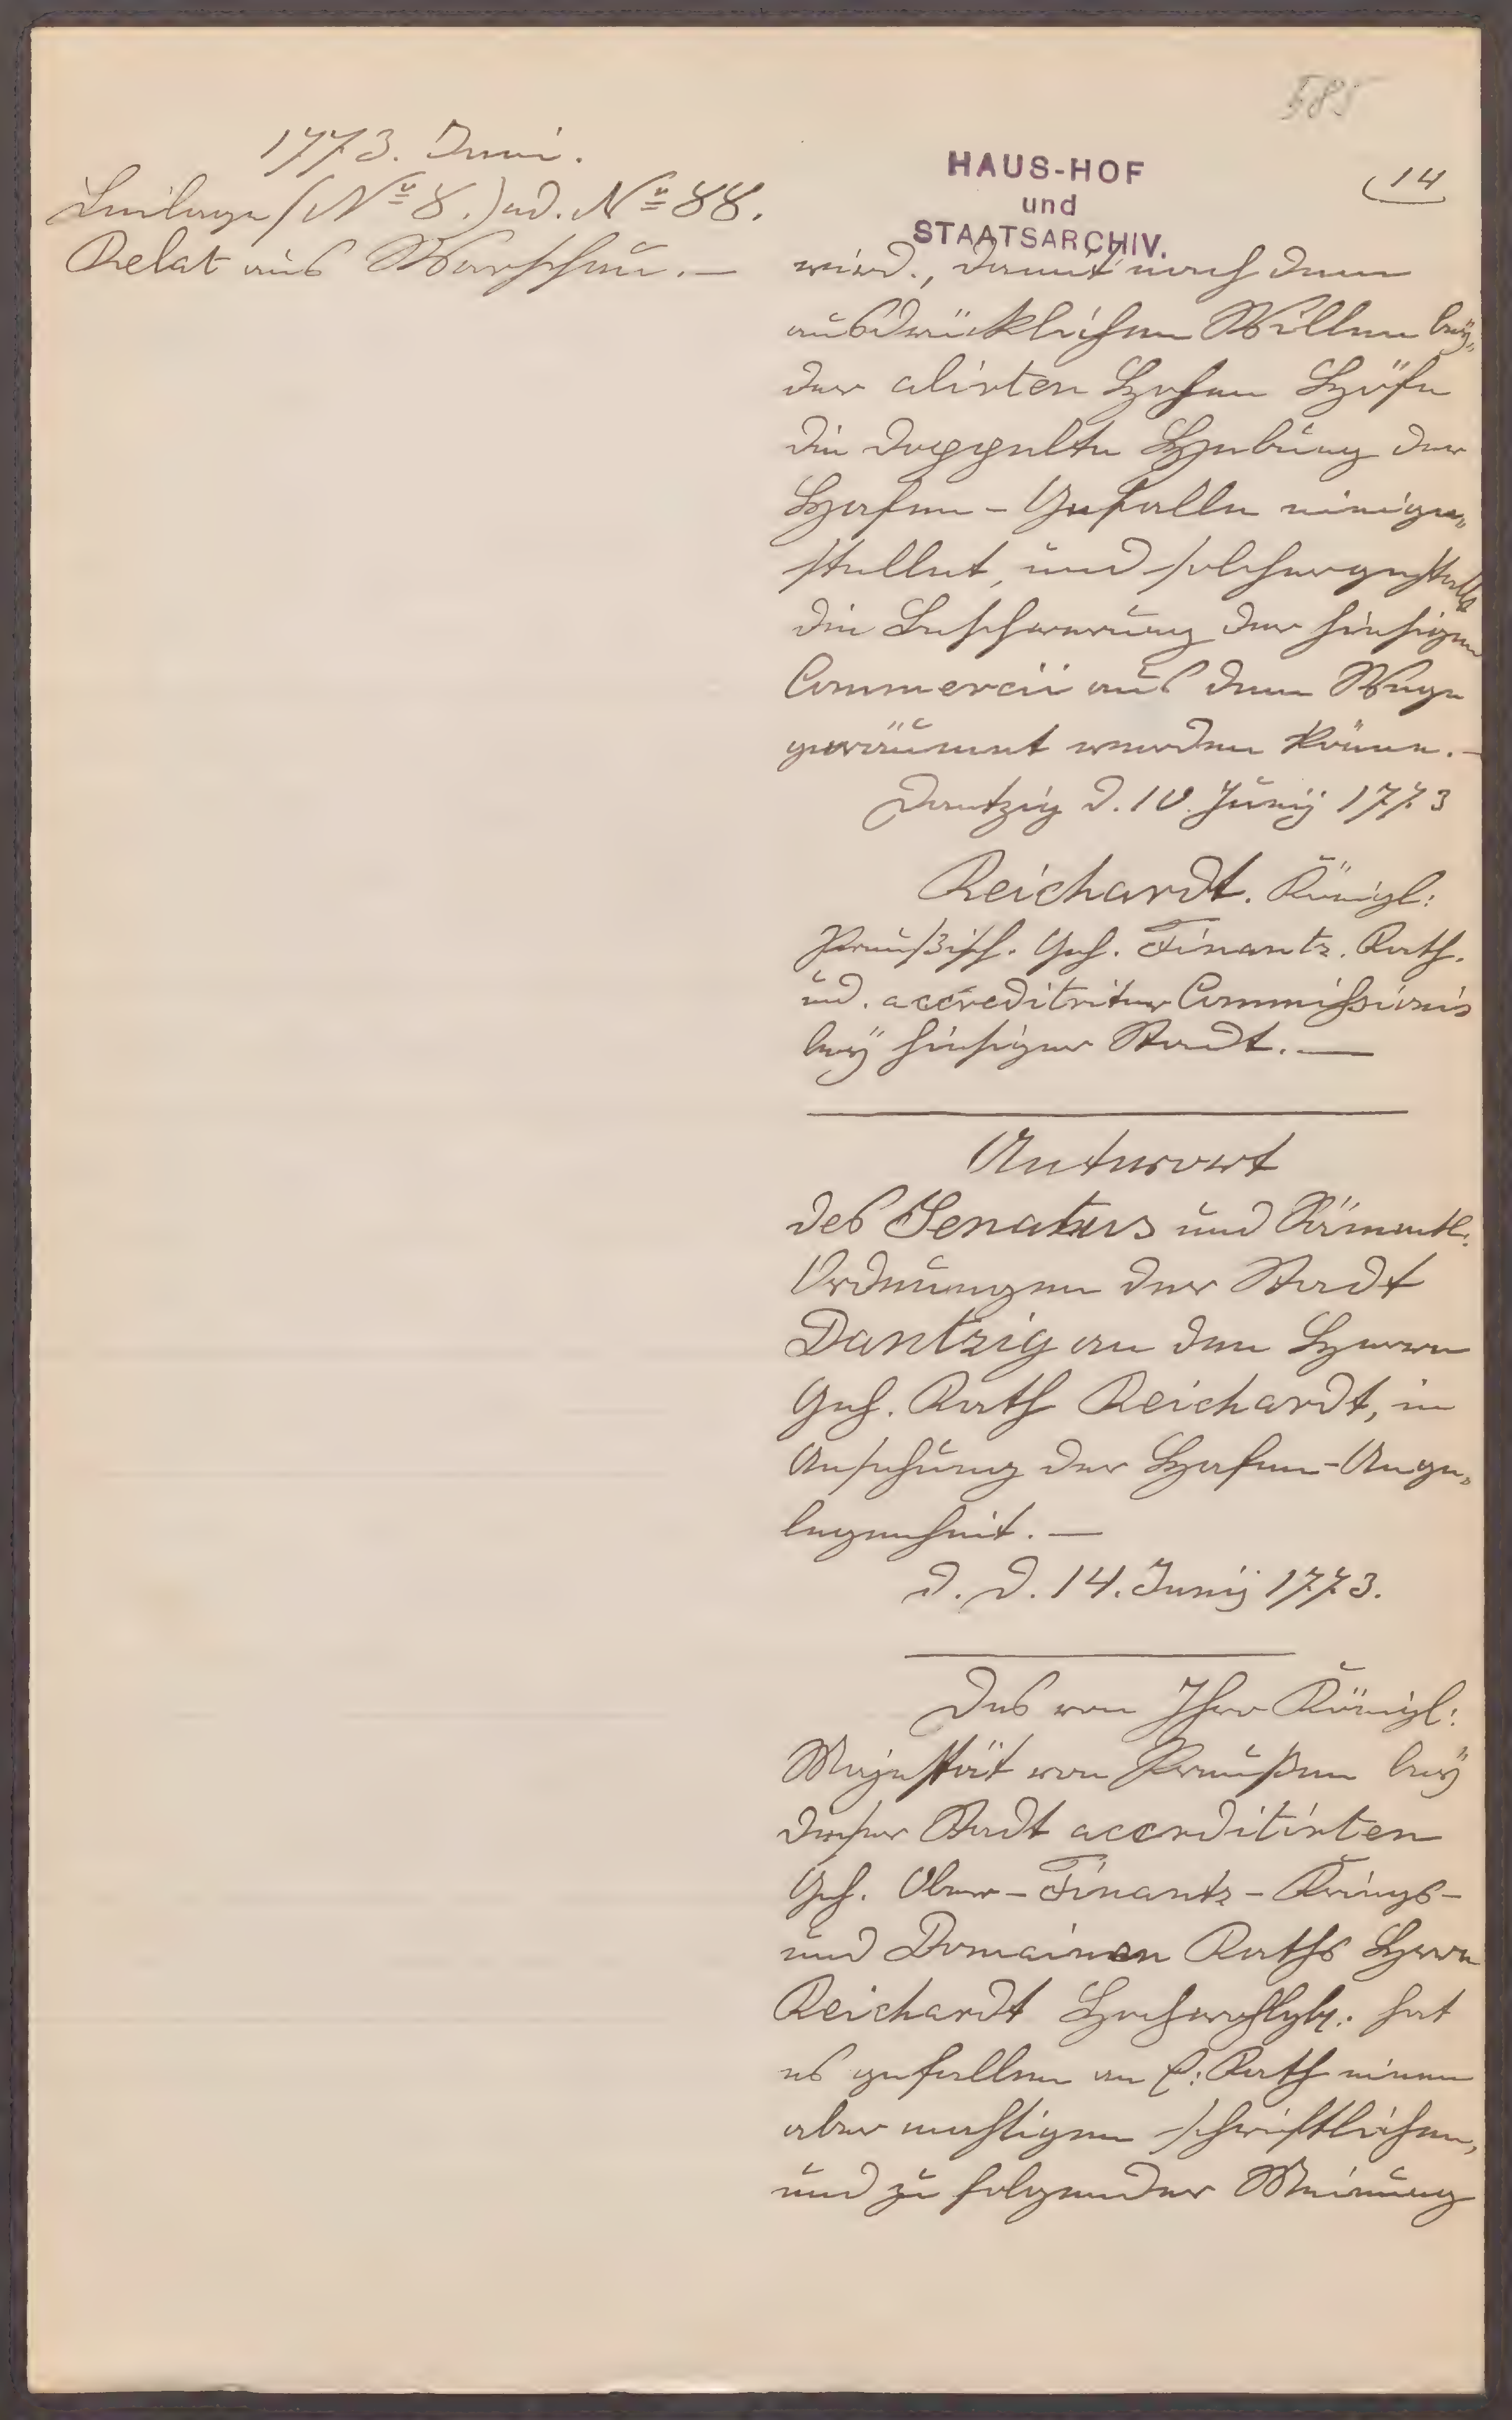 585
1773. Juni.
Beilage (No 8.) ad. No 88.
Relat aus Warschau. —
HAUS-HOF
und
STAATSARCHIV.
14
wird., damit nach dem
ausdrücklichen Willen bey„
der alirten Hohen Höfe
die doppelte Hebung der
Hafen-Gefälle einige„
stellet, und solchergestalt
die Beschwerung der hiesigen
Commercii aus dem Wege
geräumet werden könne. —
Dantzig d. 10. Junij 1773
Reichardt. Königl:
Preußisch. Geh. Finantz. Rath.
und. accreditirter Commissionis
bey hiesiger Stadt. —
Antwort
des Senatus und Sämmtl:
Ordnungen der Stadt
Dantzig an den Herrn
Geh. Rath Reichardt, in
Ansehung der Hafen-Ange„
legenheit. —
d. d. 14. Junij 1773.
Des von Ihro Königl:
Majestät von Preußen bey
dieser Stadt accreditirten
Geh. Ober-Finantz-Kriegs-
und Domainen Raths Herrn
Reichardt Hochwohlgb: hat
es gefallen an E: Rath einen
aber mahligen schriftlichen,
und zu folgender Meinung